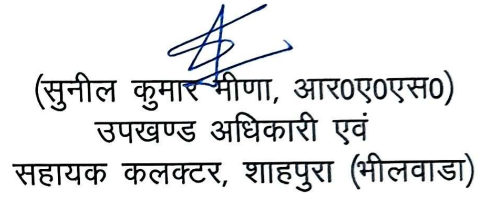 (सुनील कुमार मीणा, आर0ए0एस0)
उपखण्ड अधिकारी एवं
सहायक कलक्टर, शाहपुरा (भीलवाडा)